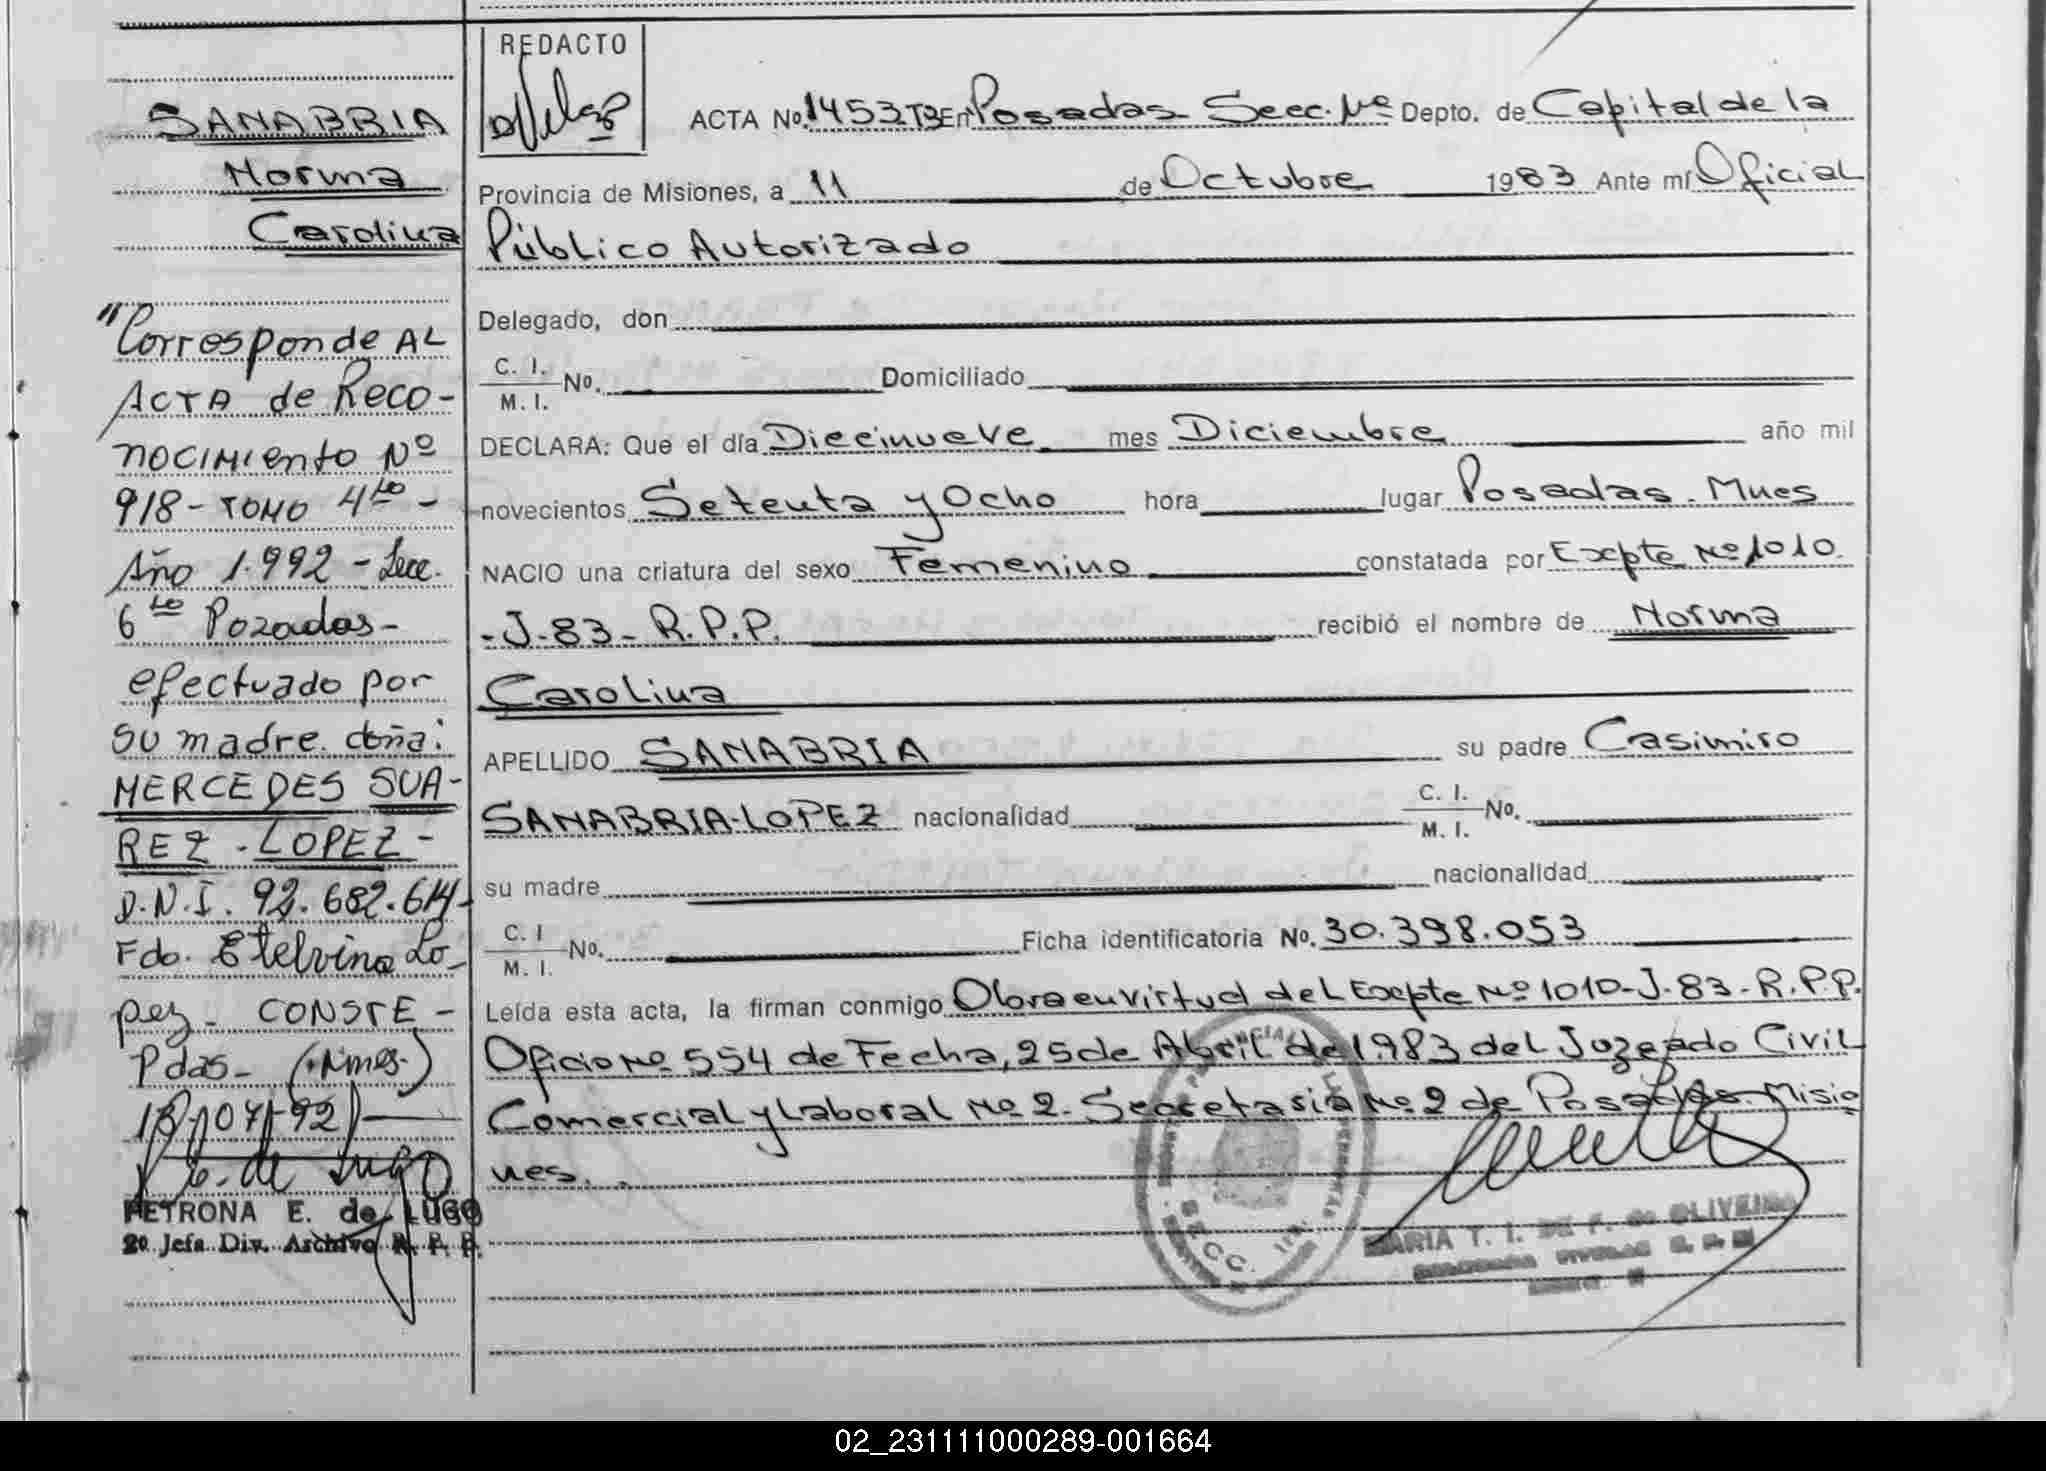 SANABRIA
Norma
Carolina
"Corresponde AL
ACTA de Reco-
nocimiento Nº
918 - TOMO 4to -
Año 1.992 - Secc.
6ta Pozadas -
efectuado por
su madre doña:
MERCEDES SUA-
REZ - LOPEZ -
D.N.I. 92.682.614-
Fdo. Etelvina Lo-
pez - CONSTE -
Pdas - (Mnes.)
13/07/92
P. E. de Lugo
PETRONA E. de LUGO
2º Jefa Div. Archivo R. P. P.
REDACTO
ACTA No. 1453 T3 En Posadas Secc. 1ra Depto. de Capital de la
Provincia de Misiones, a 11 de Octubre 1983 Ante mí Oficial
Público Autorizado
Delegado, don
C. I.
M. I. No. Domiciliado
DECLARA: Que el día Diecinueve mes Diciembre año mil
novecientos Setenta y Ocho hora lugar Posadas - Mnes
NACIO una criatura del sexo Femenino constatada por Expte Nº 1010
-J-83- R.P.P. recibió el nombre de Norma
Carolina
APELLIDO SANABRIA su padre Casimiro
SANABRIA-LOPEZ nacionalidad C. I.
M. I. No.
su madre nacionalidad
C. I
M. I. No. Ficha identificatoria No. 30.398.053
Leída esta acta, la firman conmigo Obra en virtud del Expte Nº 1010-J-83-R.P.P.
Oficio Nº 554 de Fecha, 25 de Abril de 1983 del Juzgado Civil
Comercial y Laboral Nº 2 - Secretaria Nº 2 de Posadas - Misio
nes.
MARIA T. I. DE F. de OLIVEIRA
02_231111000289-001664